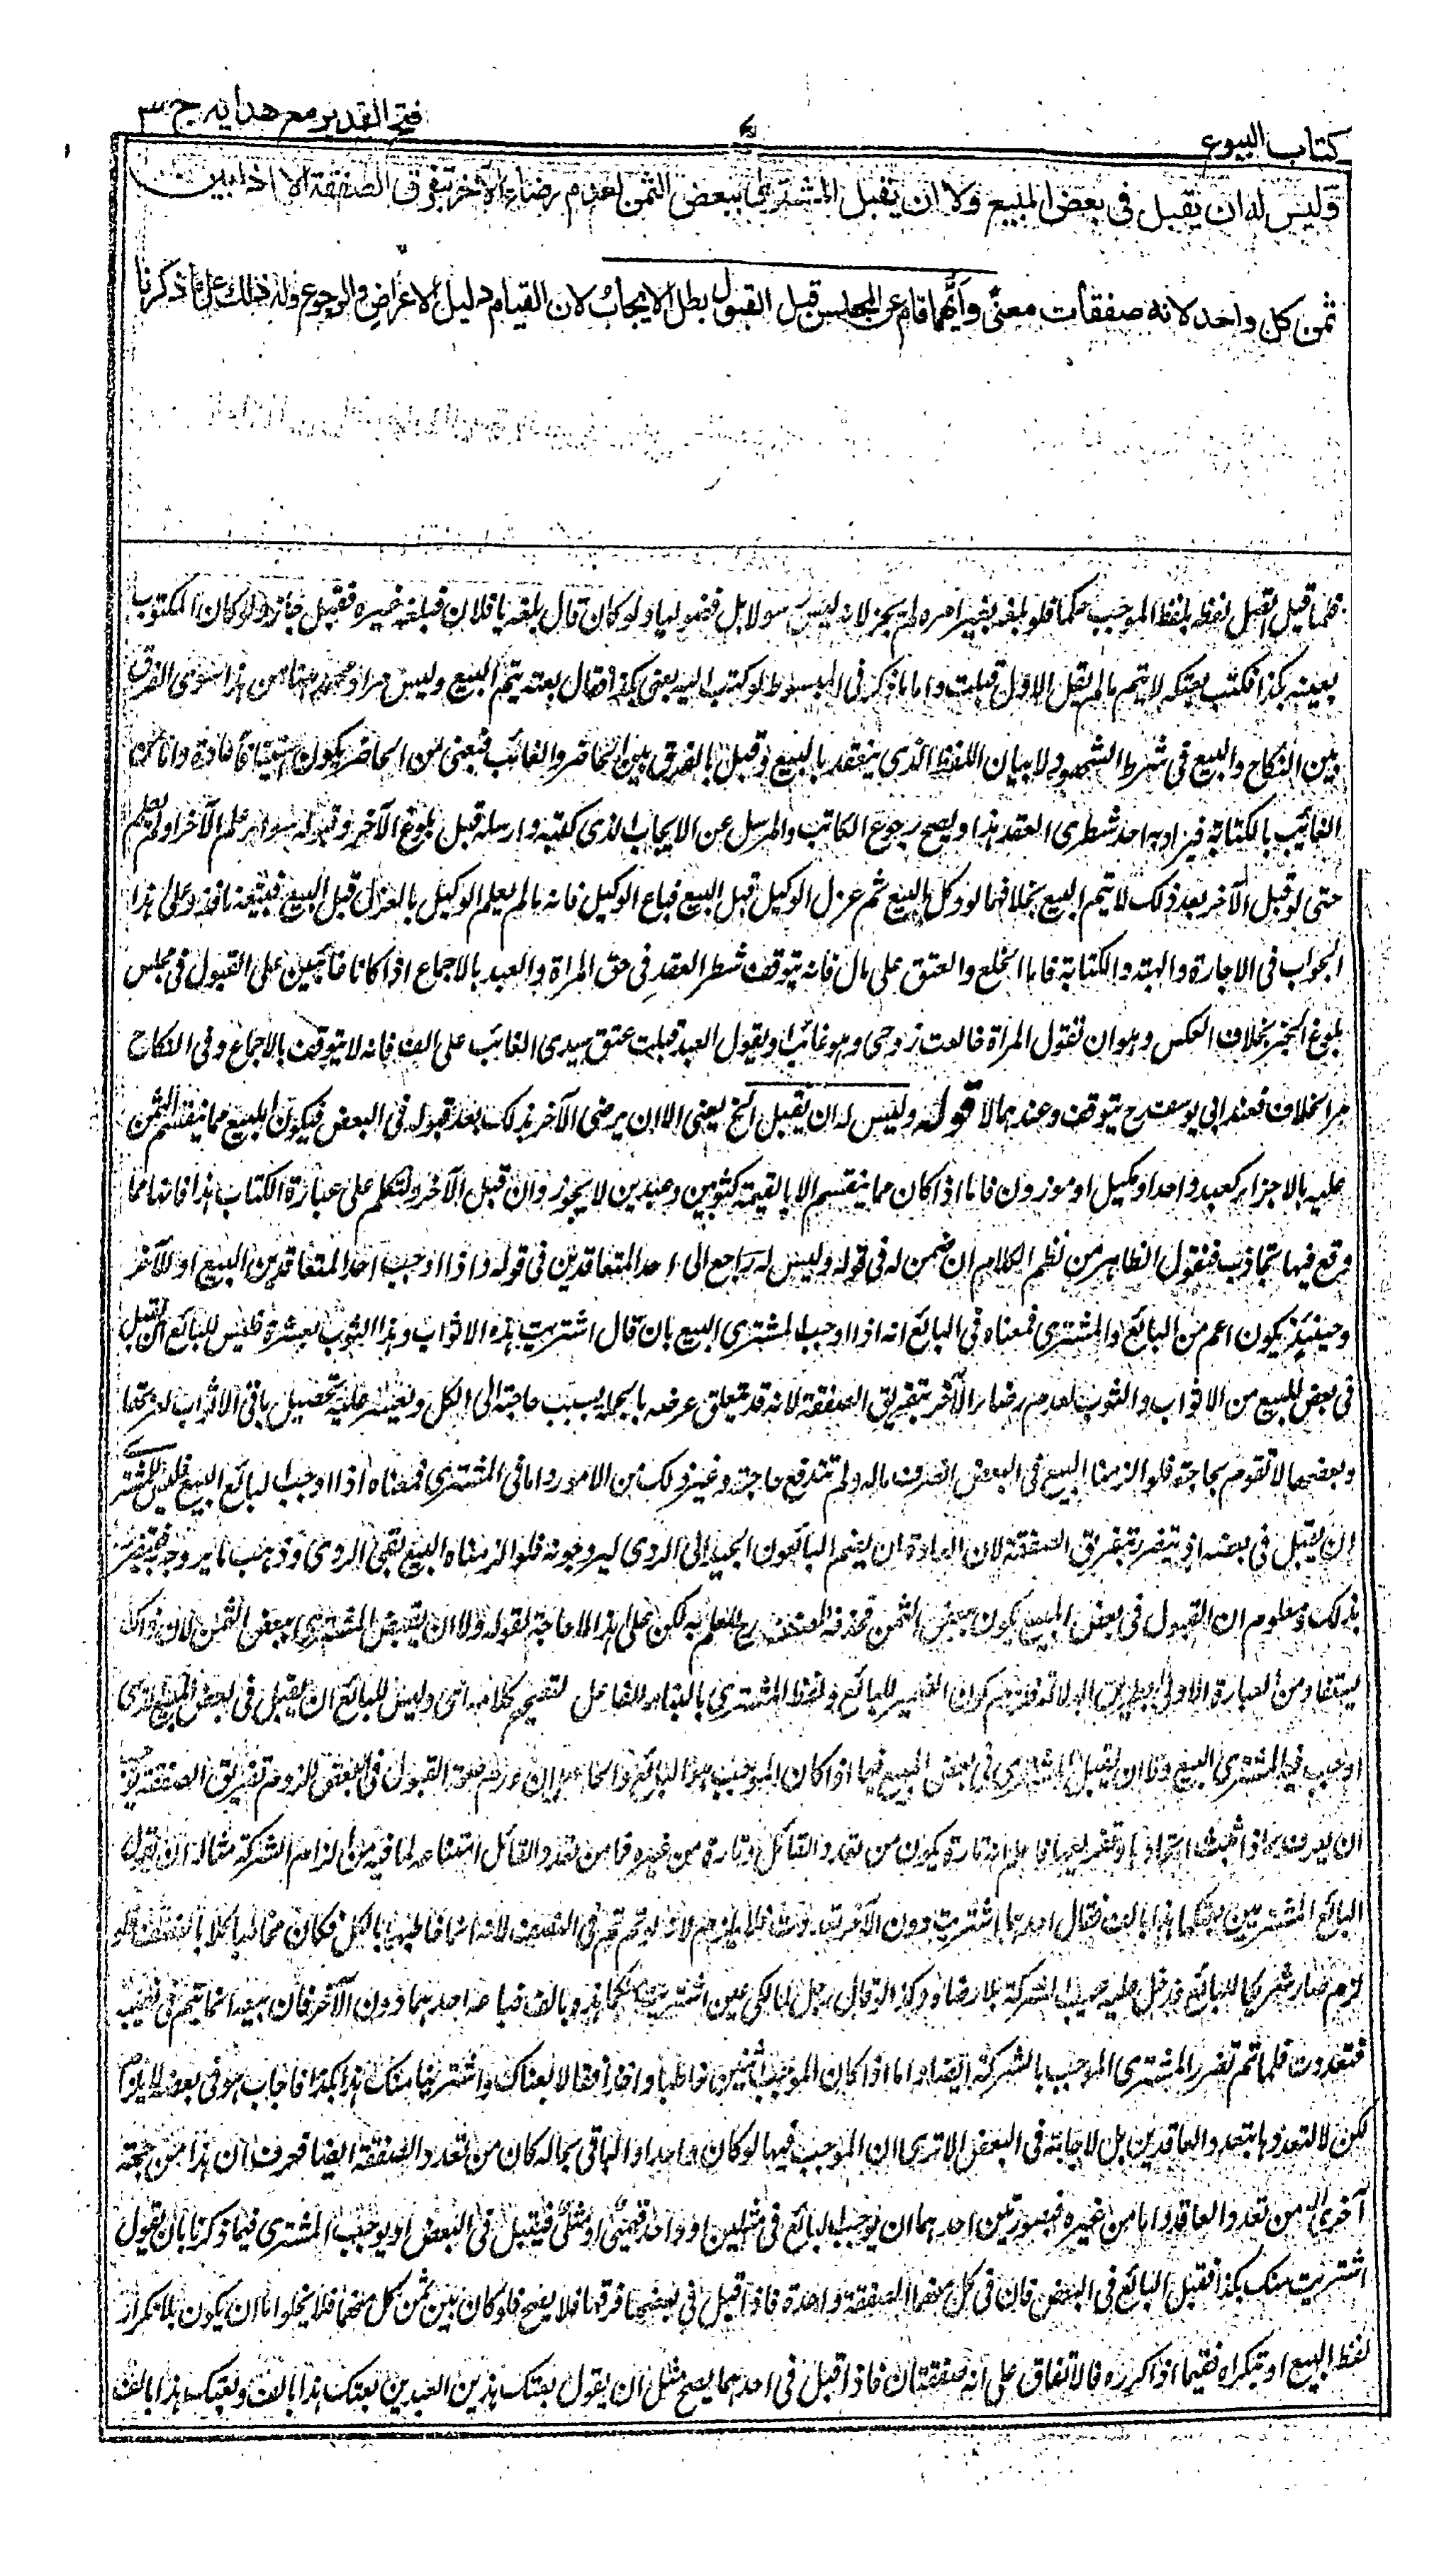 كتاب البيوع
فتح القدير مع هدايه ج ٣
وليس له ان يقبل فى بعض المبيع ولا ان يقبل المشترى ببعض الثمن لعدم رضاء الآخر بتفرق الصفقة الا اذا بين
ثمن كل واحد لانه صفقات معنًى وايّهما قام عن المجلس قبل القبول بطل الايجاب لان القيام دليل الاعراض والرجوع وله ذلك على ما ذكرنا
بلفظ الموجب حكما فلو بلغه بغير امره لم يجز لانه ليس رسولا بل فضوليا ولو كان قال بلغه يا فلان فبلغه غيره فقبل جاز ولو كان المكتوب
بعينه بكذا فكتب بعتكه لا يتم ما لم يقل الاول قبلت واما ما ذكر فى المبسوط لو كتب اليه بعنى بكذا فقال بعته يتم البيع وليس مراد محمد ههنا من هذا سوى الفرق
بين النكاح والبيع فى شرط الشهود لا بيان اللفظ الذى ينعقد به البيع وقيل بالفرق بين الحاضر والغائب فبعنى من الحاضر يكون استياما عادة واما من
الغائب بالكتابة فيراد به احد شطرى العقد هذا ويصح رجوع الكاتب والمرسل عن الايجاب الذى كتبه وارسله قبل بلوغ الآخر وقبوله سواء علم الآخر او لم يعلم
حتى لو قبل الآخر بعد ذلك لا يتم البيع بخلاف ما لو وكل بالبيع ثم عزل الوكيل قبل البيع فباع الوكيل فانه ما لم يعلم الوكيل بالعزل قبل البيع فبيعه نافذ وعلى هذا
الجواب فى الاجارة والهبة والكتابة فاما الخلع والعتق على مال فانه يتوقف شطر العقد فى حق المرأة والعبد بالاجماع اذا كانا غائبين على القبول فى مجلس
بلوغ الخبر بخلاف العكس وهو ان تقول المرأة خالعت زوجى وهو غائب او يقول العبد قبلت عتق سيدى الغائب على الف فانه لا يتوقف بالاجماع وفى النكاح
مر الخلاف فعند ابى يوسف رح يتوقف وعندهما لا قوله وليس له ان يقبل الخ يعنى الا ان يرضى الآخر بذلك بعد قبوله فى البعض فيكون المبيع مما ينقسم الثمن
عليه بالاجزاء كعبد واحد او مكيل او موزون فاما اذا كان مما لا ينقسم الا بالقيمة كثوبين وعبدين لا يجوز وان قبل الآخر ولنتكلم على عبارة الكتاب هذا فانها مما
وقع فيها تجاذب فنقول الظاهر من نظم الكلام ان ضمير له فى قوله وليس له راجع الى احد المتعاقدين فى قوله واذا اوجب احد المتعاقدين البيع او للآخر
وحينئذ يكون اعم من البائع والمشترى فمعناه فى البائع انه اذا اوجب المشترى البيع بان قال اشتريت هذه الاثواب وهذا الثوب بعشرة فليس للبائع ان يقبل
فى بعض المبيع من الاثواب والثوب لعدم رضاء الآخر بتفريق الصفقة لانه قد تعلق غرضه بالجملة بسبب حاجته الى الكل ويعسر عليه تحصيل باقى الاثواب
وبعضها لا تقوم بحاجته فلو الزمنا البيع فى البعض انصرف ماله ولم تندفع حاجته وغير ذلك من الامور واما فى المشترى فمعناه اذا اوجب البائع البيع فليس للمشترى
ان يقبل فى بعضه اذ يتضرر بتفريق الصفقة لان العادة ان يضم البائعون الجيد الى الردى ليروجونه فلو الزمناه البيع بقى الردى وذهب ما يروجه فيتضرر
بذلك ومعلوم ان القبول فى بعض المبيع يكون ببعض الثمن فحذفه المصنف رح للعلم به لكن على هذا لا حاجة لقوله ولا ان يقبل المشترى ببعض الثمن لان ذلك
يستفاد من العبارة الاولى كون الضمير للبائع ولفظ المشترى بالبناء للفاعل لتصحيح كلامه اى وليس للبائع ان يقبل فى بعض المبيع الذى
اوجب فيه المشترى البيع ولا ان يقبل المشترى فى بعض المبيع فيما اذا كان الموجب هو البائع والحاصل ان عدم صحة القبول فى البعض للزوم تفريق الصفقة
تارة يكون من تعدد القائل وتارة من غيره فما من تعدد القائل مثاله ان يقول
البائع لمشتريين بعتكما هذا بالف فقال احدهما اشتريت دون الآخر تعددت فلا يلزم لانه لو تم تم فى النصف لانه انما خاطبهما بالكل فكان مخاطبا كلا بالنصف فلو
لزم صار شريكا للبائع فدخل عليه عيب الشركة بلا رضاه وكذا لو قال رجل لمالكى عين اشتريت منكما هذه بالف فباعه احدهما دون الآخر فان بيعه انما يتم فى نصيبه
فتعددت فلما تم تضرر المشترى الموجب بالشركة ايضا واما اذا كان الموجب اثنين خاطبا واحدا فقالا بعناك او اشترينا منك هذا بكذا فاجاب هو فى بعضه لا يلزم
لكن لا لتعددها بتعدد العاقدين بل لاجابته فى البعض الا ترى ان الموجب فيها لو كان واحدا والباقى بحاله كان من تعدد الصفقة ايضا فعرف ان هذا من جهة
اخرى لا من تعدد العاقد واما من غيره فبصورتين احدهما ان يوجب البائع فى مثليين او واحد قيمى او مثلى فيقبل فى البعض او يوجب المشترى فيما ذكرنا بان يقول
اشتريت منك بكذا فقبل البائع فى البعض فان فى كل منهما الصفقة واحدة فاذا قبل فى بعضها فرقها فلا يصح فلو كان بين ثمن كل منهما فلا يخلو اما ان يكون بلا تكرار
لفظ البيع او بتكراره ففيما اذا كرره فالاتفاق على انه صفقتان فاذا قبل فى احدهما يصح مثل ان يقول بعتك هذين العبدين بعتك هذا بالف وبعتك هذا بالف